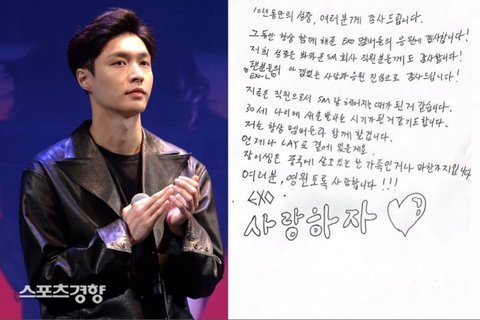 10년동안의 성장, 여러분께 감사드립니다.
그동안 항상 함께 해준 EXO 멤버들의 응원에 감사합니다!
저희 성장을 봐봐준 SM 회사 직원분들께도 감사합니다!
팬분들의 아낌없는 사랑과 응원 진심으로 감사드립니다!
EXO-L
지금은 직원으로서 SM 헤어지는때가 된거 같습니다.
30세 나이에 새출발하는 시기가 된거같기도합니다.
저는 항상 멤버들과 함께 할겁니다.
언제나 LAY로 곁에 있을게요.
장이씽은 중국에 살고있는 한 가족인거나 마찬가지입니다.
여러분, 영원토록 사랑합니다!!!
EXO.
사랑하자
스포츠경향